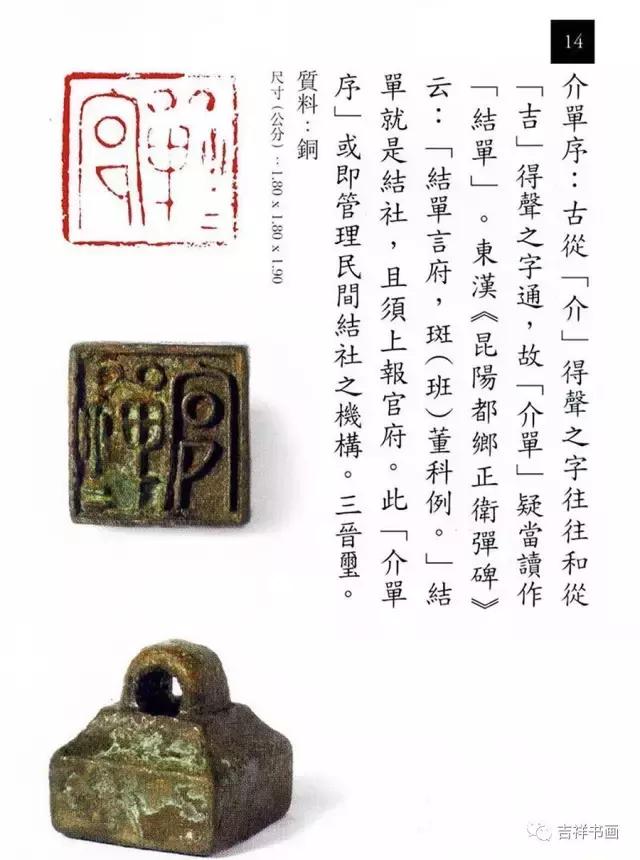 14
介單序：古從「介」得聲之字往往和從
「吉」得聲之字通，故「介單」疑當讀作
「結單」。東漢《昆陽都鄉正衛彈碑》
云：「結單言府，斑（班）董科例。」結
單就是結社，且須上報官府。此「介單
序」或即管理民間結社之機構。三晉璽。
質料：銅
尺寸（公分）：1.80 x 1.80 x 1.90
吉祥书画